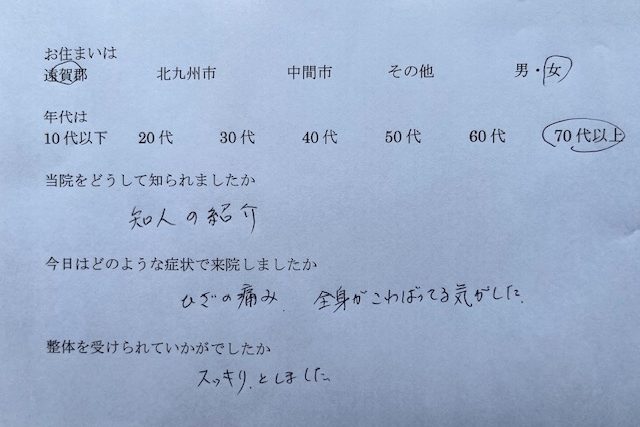 お住まいは
遠賀郡 北九州市 中間市 その他 男・女
年代は
10代以下 20代 30代 40代 50代 60代 70代以上
当院をどうして知られましたか
知人の紹介
今日はどのような症状で来院しましたか
ひざの痛み. 全身がこわばってる気がした.
整体を受けられていかがでしたか
スッキリ.としました.